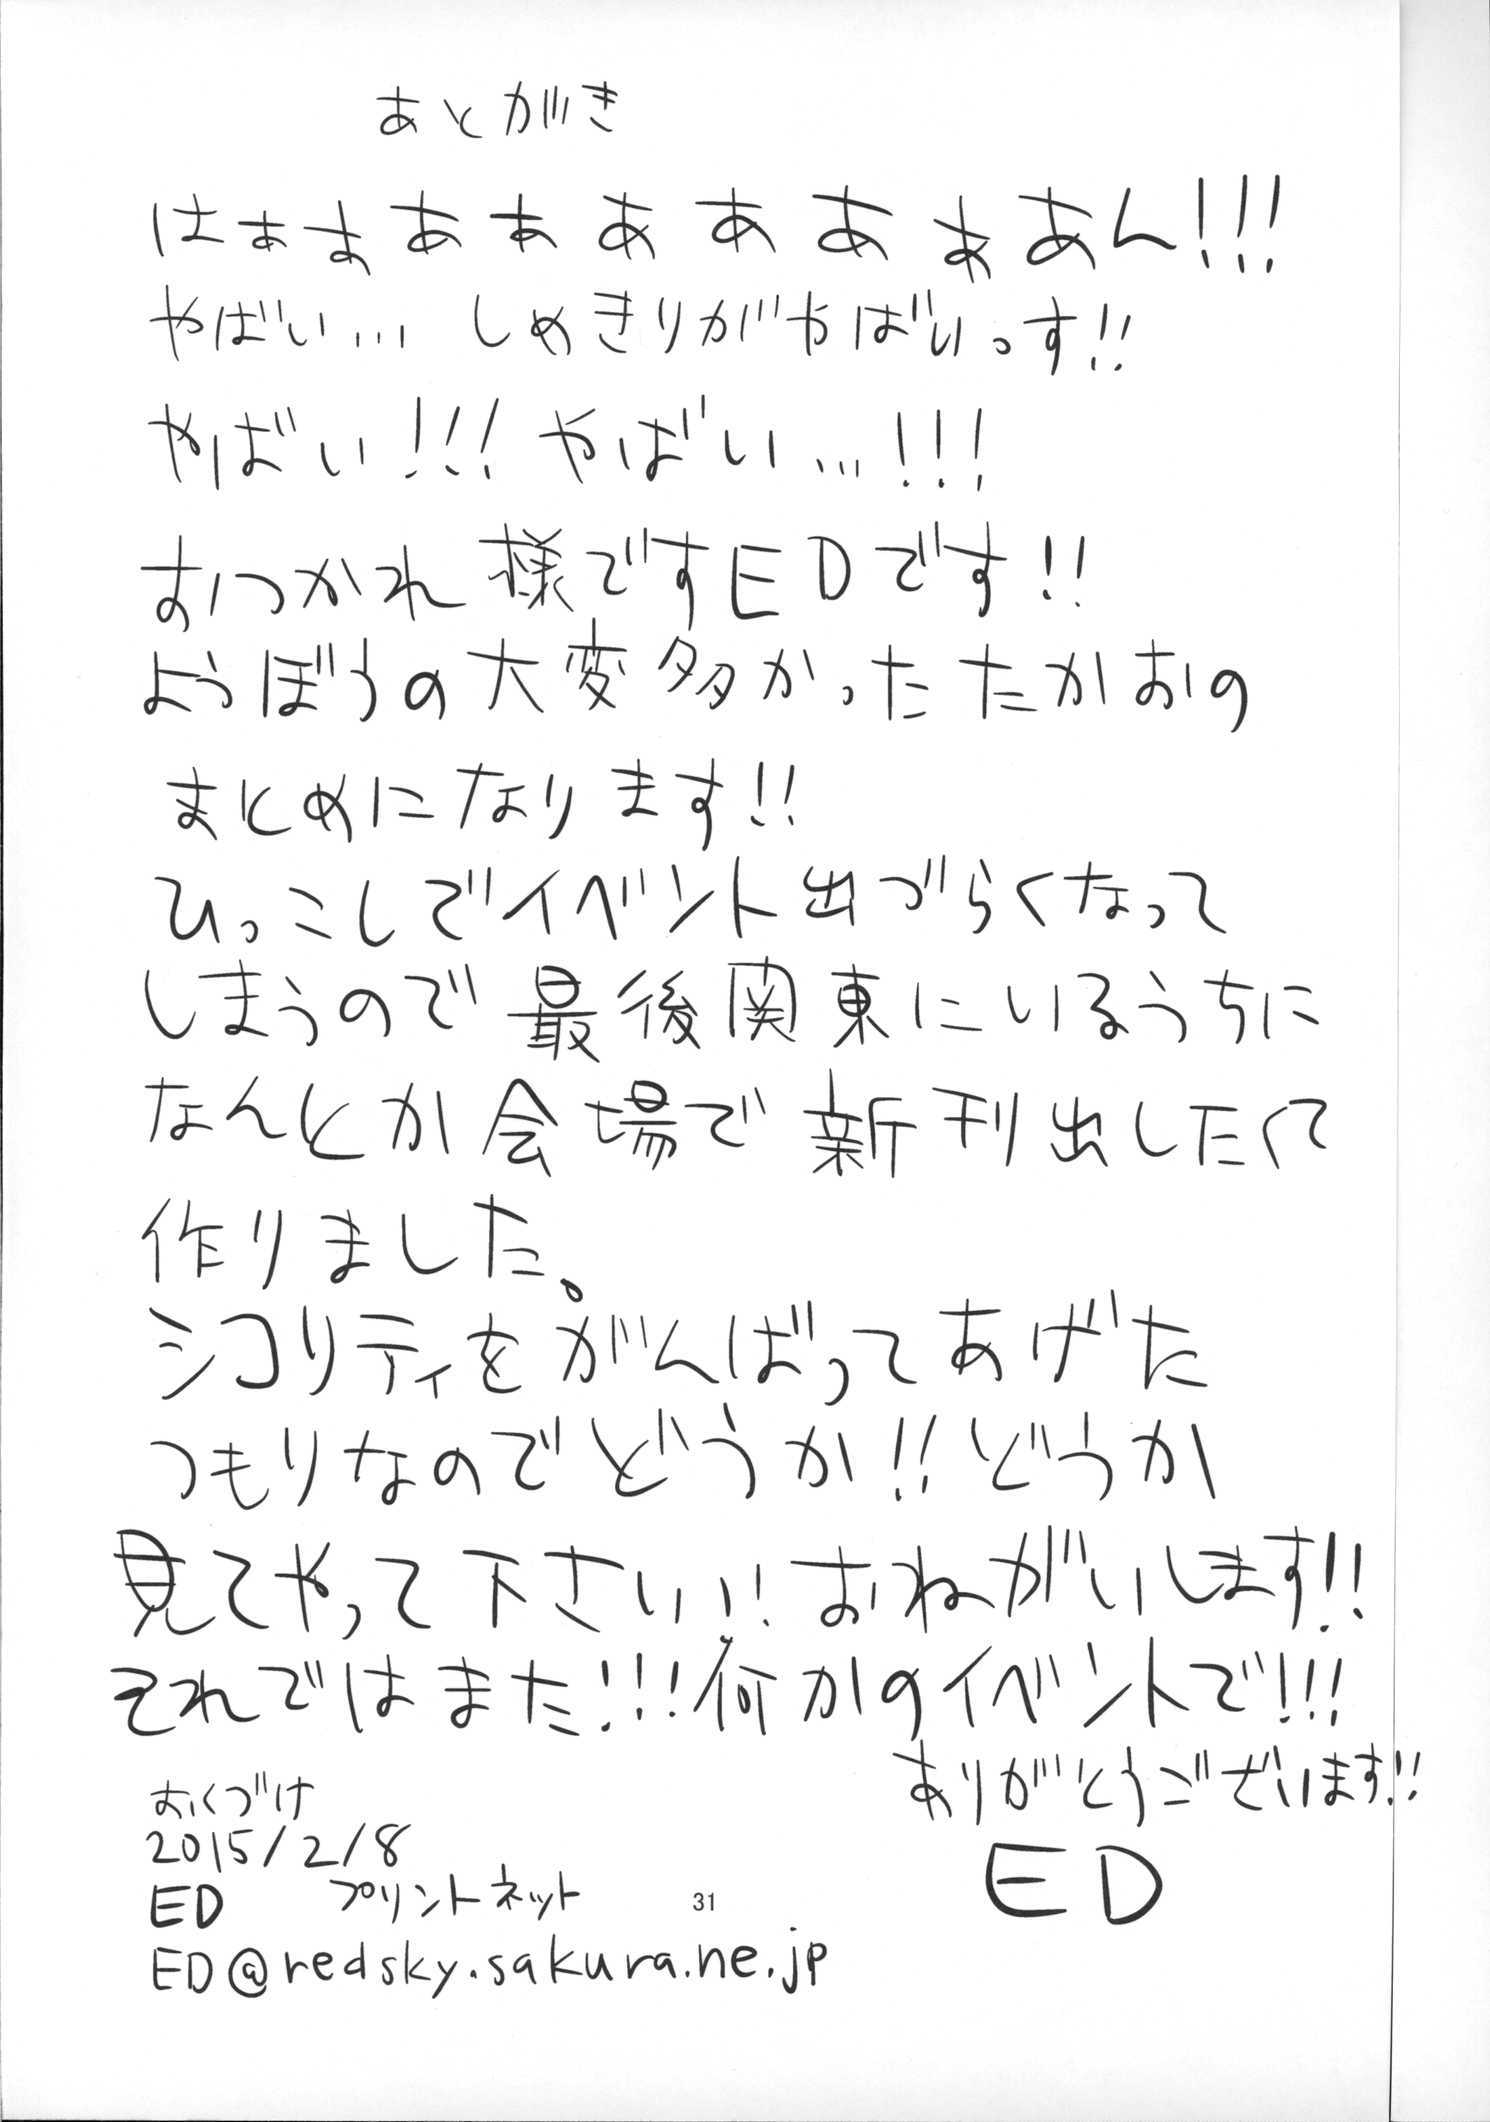 あとがき
はぁぁあぁあああぁあん!!!
やばい… しめきりがやばいっす!!
やばい!!! やばい…!!!
おつかれ様ですEDです!!
ようぼうの大変多かったたかおの
まとめになります!!
ひっこしでイベント出づらくなって
しまうので最後関東にいるうちに
なんとか会場で新刊出したくて
作りました。
シコリティをがんばってあげた
つもりなのでどうか!!どうか
見てやって下さいい!おねがいします!!
それではまた!!!何かのイベントで!!!
ありがとうございます!!
ED
おくづけ
2015/2/8
ED プリントネット
ED@redsky.sakura.ne.jp
31